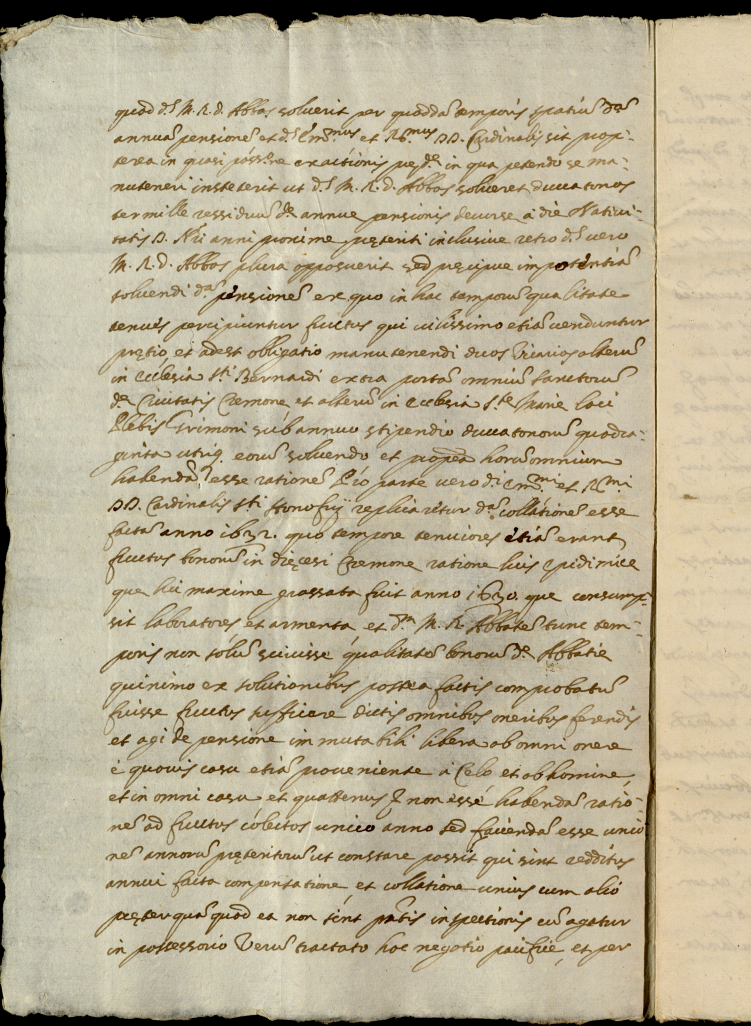 quod d.s M. R. d. Abbas soluerit per quodda' temporis spatiu' da'
annua' pensione' et d.s Em.mus et R.mus DD. Cardinalis sit prop-
terea in quasi poss.ne exactionis in qua petendo se ma-
nuteneri institerit ut d.s M. R. d. Abbas solueret ducatonos
ter mille ressiduu' de annue pensionis decurse à die Natiui-
tatis D. N'ri anni proxime preteriti inclusiue retro d.s uero
M. R. d. Abbas plura opposuerit sed precipue impotentia'
soluendi da' pensione' ex quo in hac temporu' qualitate
tenues percipiuntur fructus qui uilissimo etia' uenduntur
pretio, et adest obligatio manutenendi duos Vicarios alteru'
in ecclesia S.ti Bernardi extra porta' omniu' Sanctoru'
de Ciuitatis Cremone et alteru' in Ecclesia S.te Marie loci
Plebis Grimoni sub annuo stipendio ducatonoru' quadra-
ginta utriq. eoru' soluendo et propea' horu' omnium
habenda' esse ratione' Pro parte uero d.i Em.mi et R.mi
DD. Cardinalis S.ti Honofrij replicaretur da' collatione' esse
facta' anno 1632. quo tempore tenuiores etia' erant
fructus bonoru' in diecesi Cremone ratione luis epidimice
que lui maxime grassata fuit anno 1630. que consump-
sit laboratores et armenta et d.m M. R. Abbate' tunc tem-
poris non solu' sciuisse qualitate' bonoru' de Abbatie
quinimo ex solutionibus postea factis comprobatu'
fuisse fructus sufficere dictis omnibus oneribus ferendis
et agi de pensione immutabili libera ab omni onere
è quouis casu etia' proueniente à Celo et ab homine,
et in omni casu et quattenus non esse habenda' ratio-
ne' ad fructus colectos unico anno sed facienda' esse unio
ne' annoru' preteritoru' ut constare possit qui sint redditus
annui facta compensatione, et collatione unius cum alio
preter qua' quod ea non sint p'ntis inspectionis cu' agatur
in possessorio Veru' tractato hoc negotio pacifice, et per